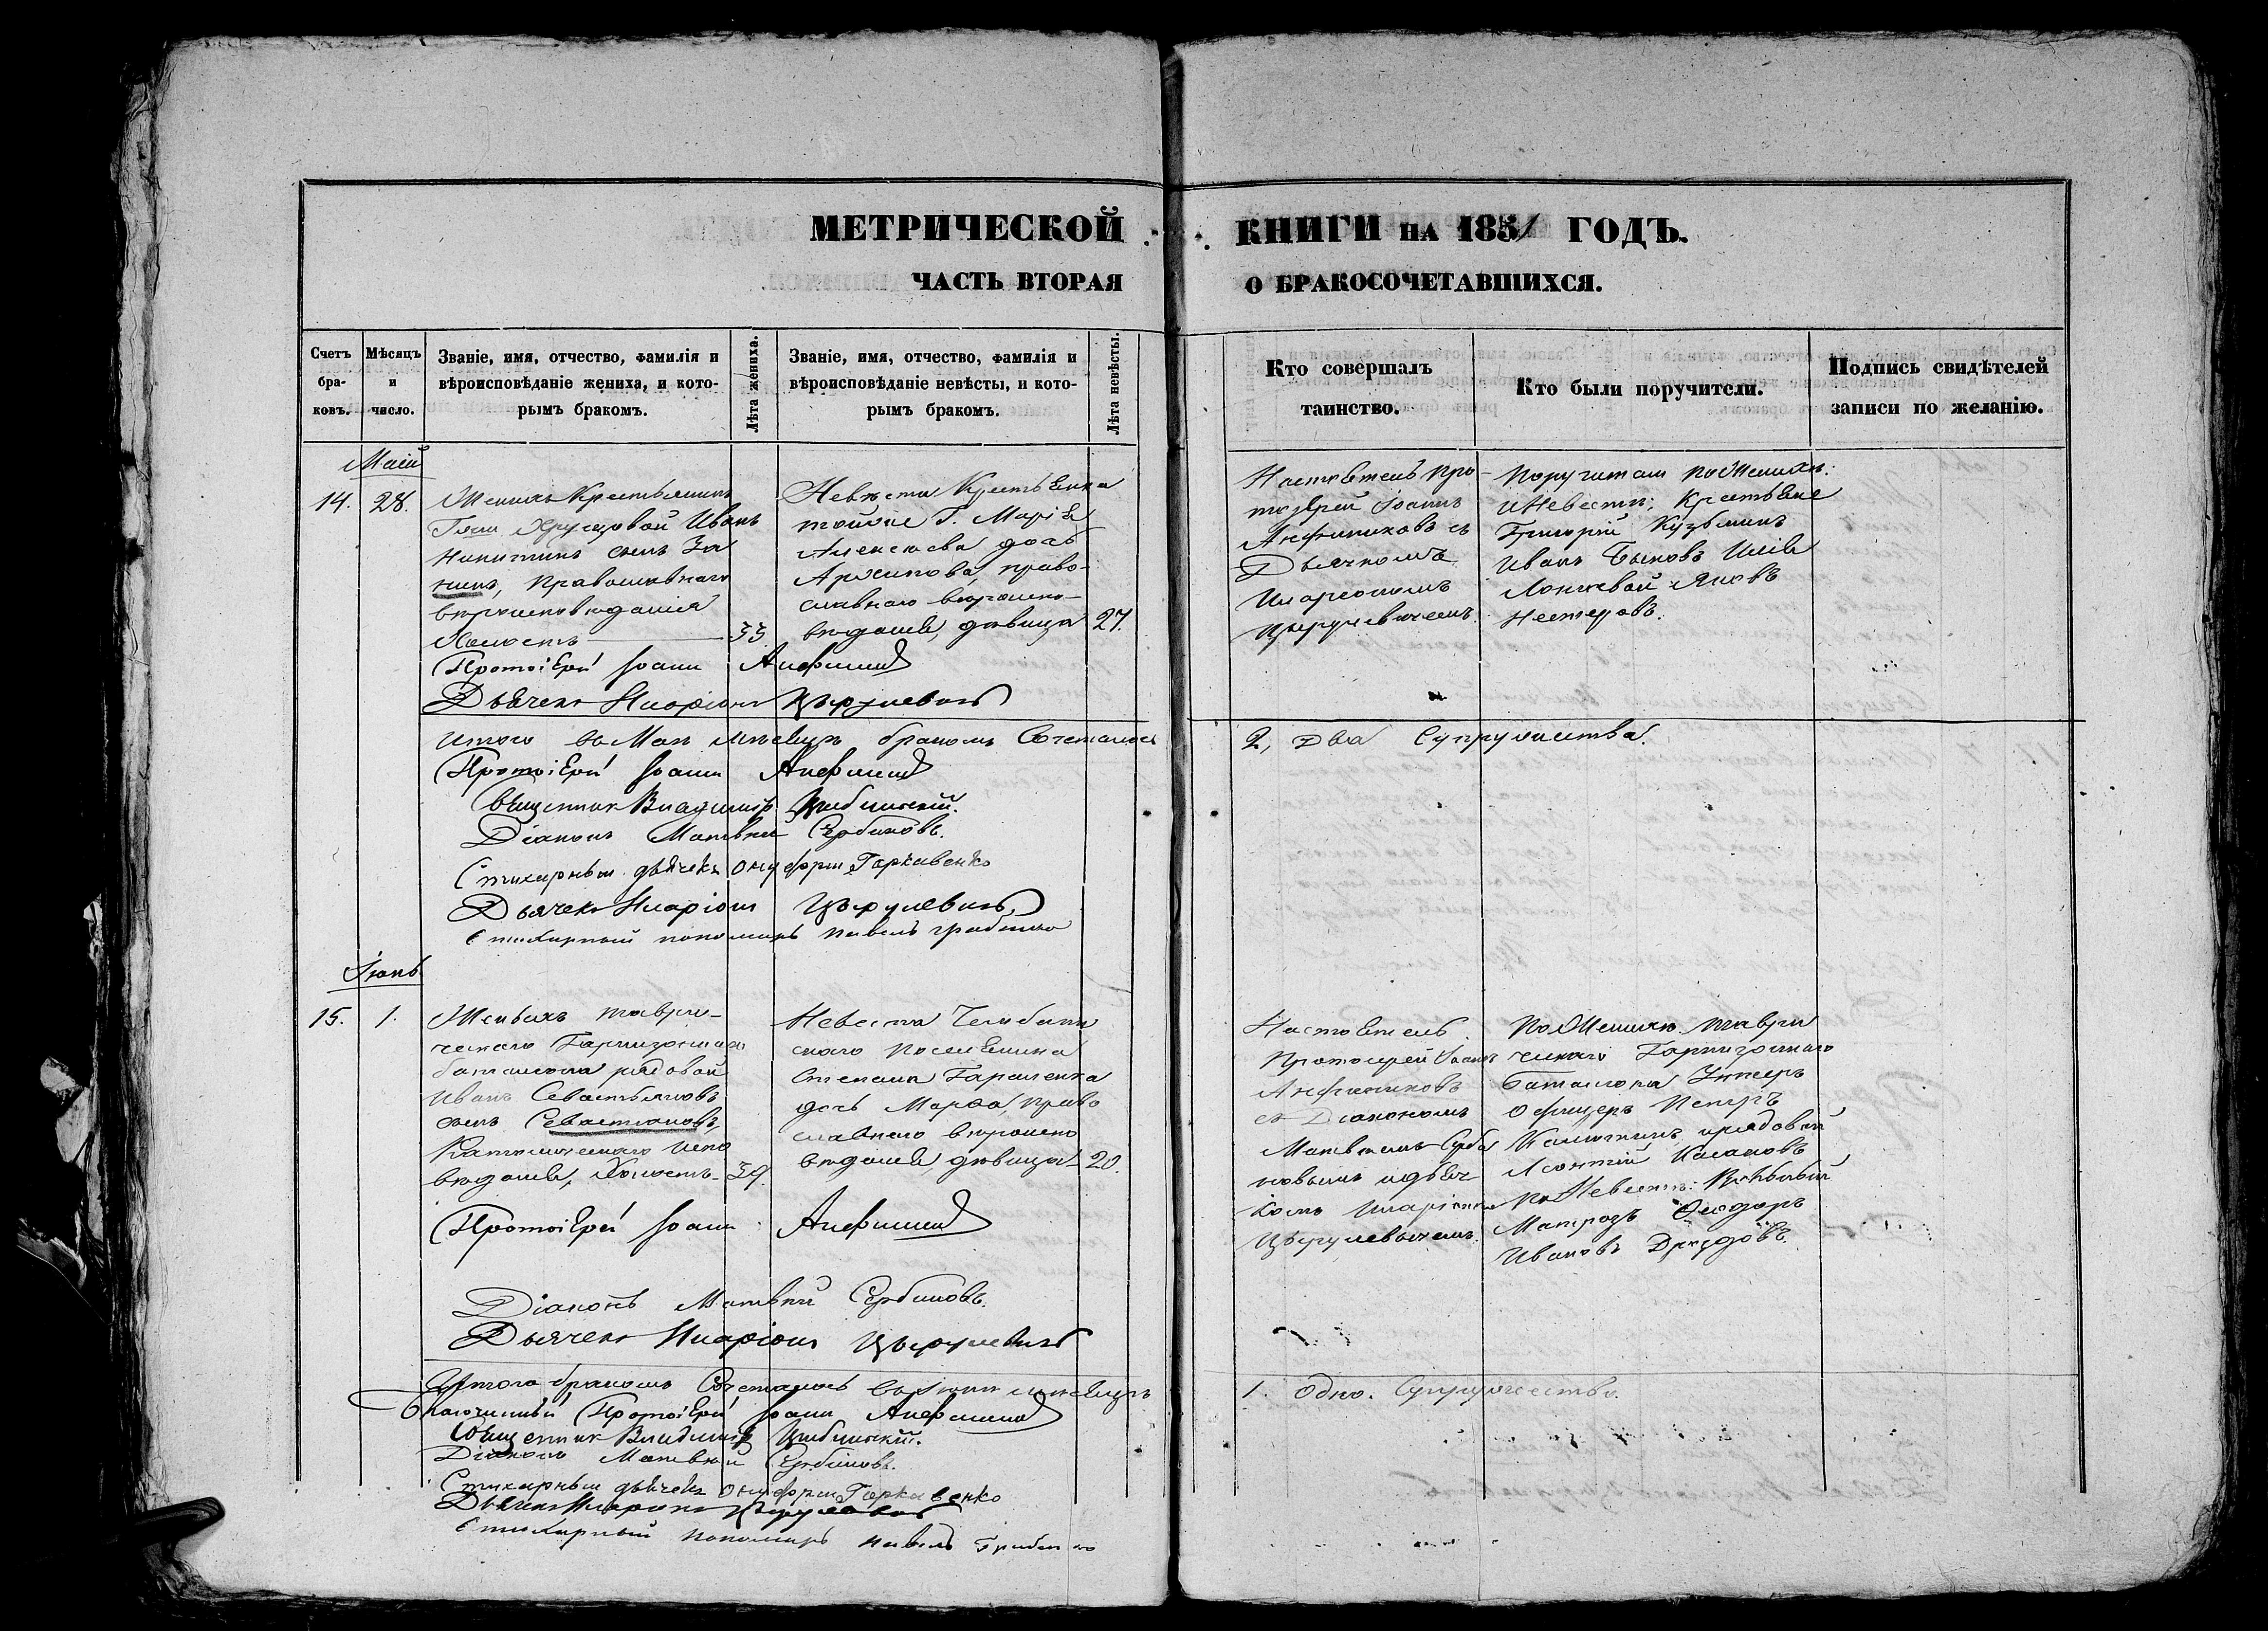 МЕТРИЧЕСКОЙ КНИГИ НА 1851 ГОДЪ.
ЧАСТЬ ВТОРАЯ О БРАКОСОЧЕТАВШИХСЯ.
Счетъ бра-ковъ.
Мѣсяцъ и число.
Званіе, имя, отчество, фамилія и
вѣроисповѣданіе жениха, и кото-
рымъ бракомъ.
Лѣта жениха.
Званіе, имя, отчество, фамилія и
вѣроисповѣданіе невѣсты, и кото-
рымъ бракомъ.
Лѣта невѣсты.
Кто совершалъ
таинство.
Кто были поручители.
Подпись свидѣтелей
записи по желанію.
Маій
14.
28.
Женихъ Крестьянинъ
Хрущовой Иванъ
Никитинъ сынъ За
нинъ, Православнаго
вѣроисповѣданія
Холостъ
33
Невѣста Крестьянка
тойже Г. Марія
Алексѣева дочь
Архипова, право-
славнаго вѣроиспо-
вѣданія, дѣвица
27.
Настоятель Про-
тоіерей Іоаннъ
Анфиниковъ съ
Дьячкомъ
Иларіономъ
Цырулевичемъ.
Поручители по Женихѣ:
и Невѣстѣ; Крестьяне
Григорій Кузьминъ
Иванъ Быковъ Илія
Яковъ
Нестеровъ.
Протоіерей Іоаннъ
Дьячекъ Иларіонъ Цырулевичъ
Итого въ Маѣ мѣсяцѣ бракомъ Сочеталось
2, Два Супружества.
Протоіерей Іоаннъ
Священникъ Владиміръ
Діаконъ Матвѣй Сербиновъ.
Стихарный дьячекъ Онуфрій Гаркавенко
Дьячекъ Иларіонъ Цырулевичъ
Стихарный пономарь Павелъ
Іюнь
15.
1.
Женихъ Таври-
ческаго Гарнизоннаго
баталіона рядовой
Иванъ Севастьяновъ
сынъ Севастіановъ,
Католическаго испо
вѣданія, Холостъ
39.
Невѣста
скаго поселянина
Степана
дочь Марѳа, право
славнаго вѣроиспо
вѣданія, дѣвица
20.
Настоятель
Протоіерей Іоаннъ
Анфиниковъ
съ Діакономъ
Матвѣемъ Серби
новымъ и дьяч
комъ Иларіономъ
Цырулевичемъ.
По Женихѣ Таври
ческаго Гарнизоннаго
Баталіона Унтеръ
офицеръ Петръ
рядовой
Леонтій
по Невѣстѣ:
Матрозъ Ѳеодоръ
Ивановъ Дроздовъ.
Протоіерей Іоаннъ
Діаконъ Матвѣй Сербиновъ.
Дьячекъ Иларіонъ Цырулевичъ
Итого бракомъ Сочеталось въ Іюнѣ мѣсяцѣ
1. Одно. Супружество.
Благочинный Протоіерей Іоаннъ
Священникъ Владиміръ
Діаконъ Матвѣй Сербиновъ.
Стихарный дьячекъ Онуфрій Гаркавенко
Дьячекъ Иларіонъ Цырулевичъ
Стихарный пономарь Павелъ